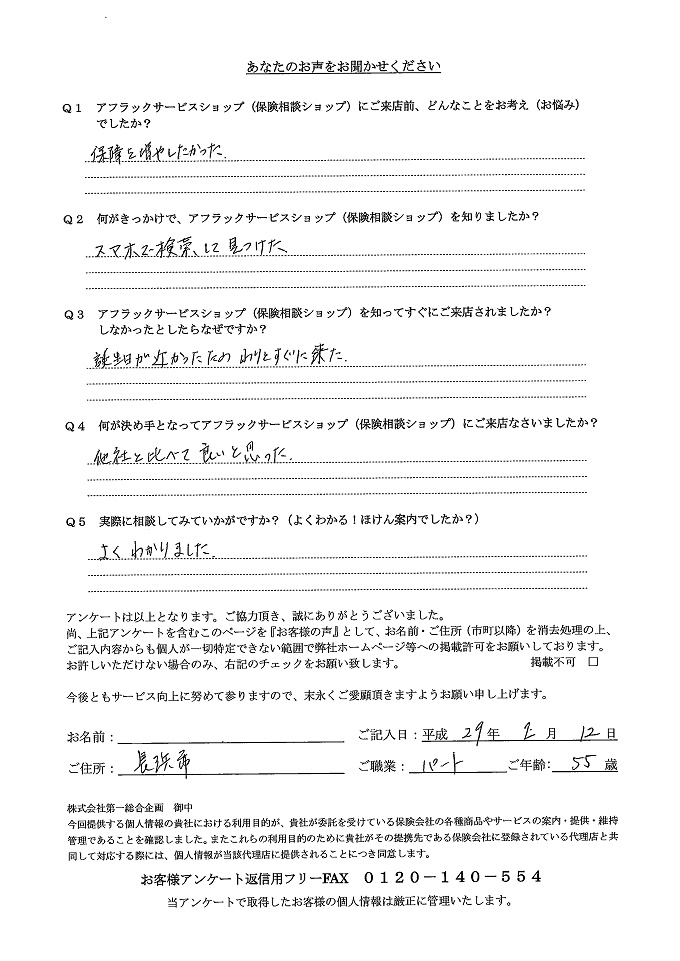 あなたのお声をお聞かせください
Q1 アフラックサービスショップ（保険相談ショップ）にご来店前、どんなことをお考え（お悩み）
でしたか？
保障を増やしたかった.
Q2 何がきっかけで、アフラックサービスショップ（保険相談ショップ）を知りましたか？
スマホで検索して見つけた
Q3 アフラックサービスショップ（保険相談ショップ）を知ってすぐにご来店されましたか？
しなかったとしたらなぜですか？
誕生日が近かったため わりとすぐに来た.
Q4 何が決め手となってアフラックサービスショップ（保険相談ショップ）にご来店なさいましたか？
他社と比べて良いと思った.
Q5 実際に相談してみていかがですか？（よくわかる！ほけん案内でしたか？）
よくわかりました.
アンケートは以上となります。ご協力頂き、誠にありがとうございました。
尚、上記アンケートを含むこのページを『お客様の声』として、お名前・ご住所（市町以降）を消去処理の上、
ご記入内容からも個人が一切特定できない範囲で弊社ホームページ等への掲載許可をお願いしております。
お許しいただけない場合のみ、右記のチェックをお願い致します。 掲載不可 □
今後ともサービス向上に努めて参りますので、末永くご愛顧頂きますようお願い申し上げます。
お名前： ご記入日：平成 29 年 2 月 12 日
ご住所： 長浜市 ご職業： パート ご年齢： 55 歳
株式会社第一総合企画 御中
今回提供する個人情報の貴社における利用目的が、貴社が委託を受けている保険会社の各種商品やサービスの案内・提供・維持
管理であることを確認しました。またこれらの利用目的のために貴社がその提携先である保険会社に登録されている代理店と共
同して対応する際には、個人情報が当該代理店に提供されることにつき同意します。
お客様アンケート返信用フリーFAX 0120－140－554
当アンケートで取得したお客様の個人情報は厳正に管理いたします。